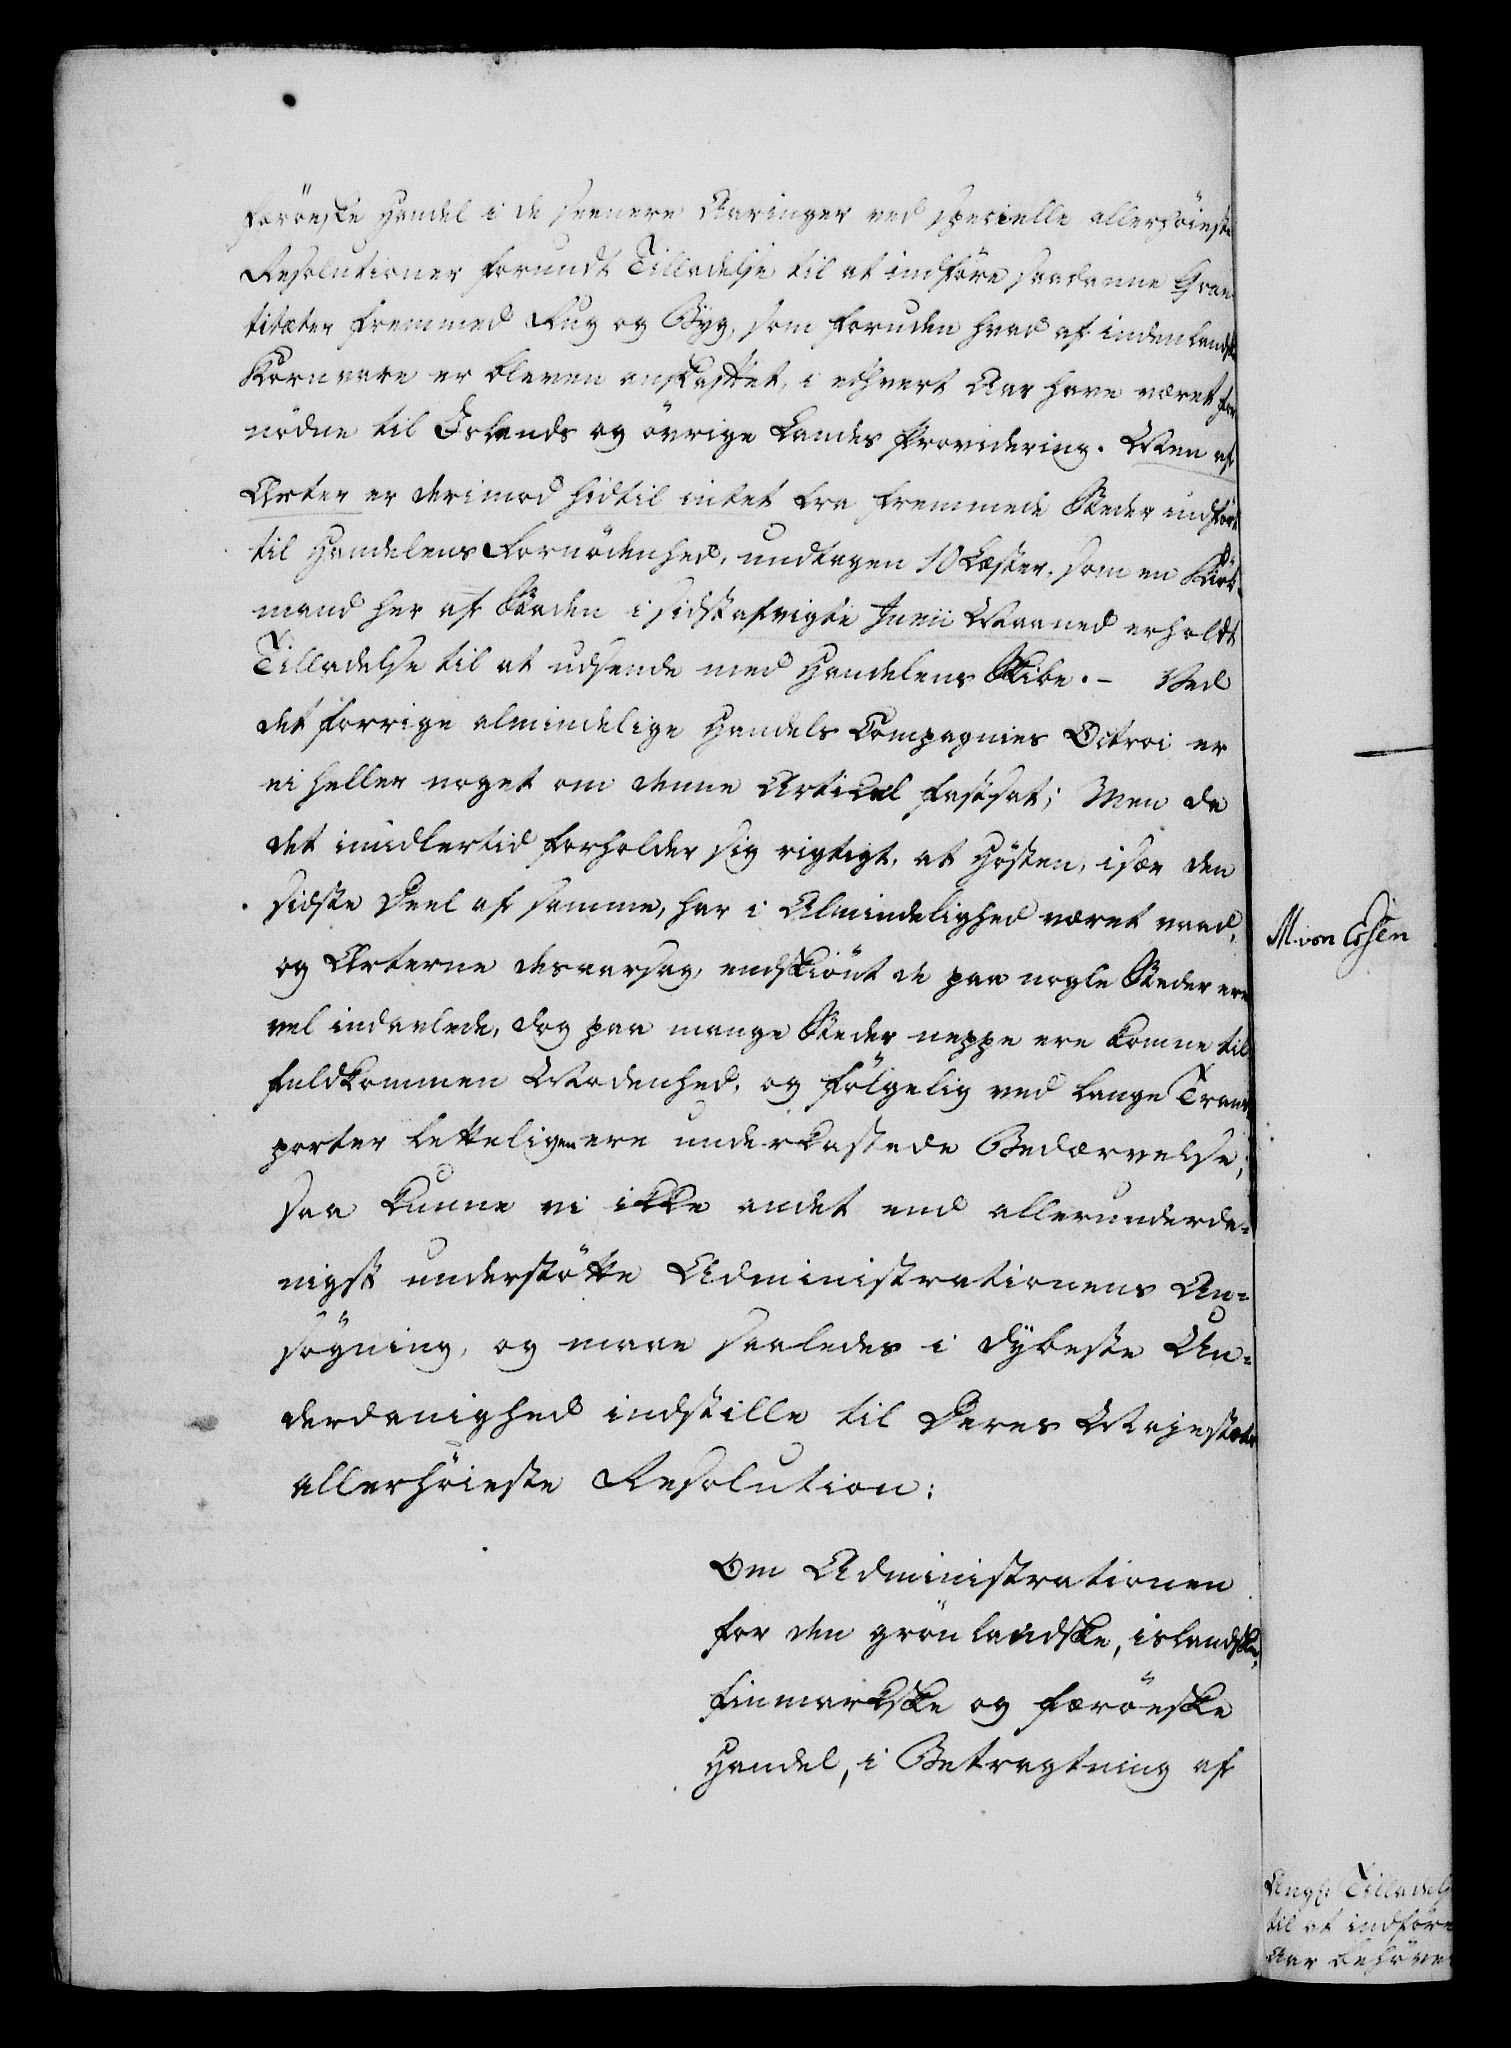 færöeske Handel i de seenere Aaringer ved specielle allerhöieste
Resolutioner forundt Tilladelse til at indföre saadanne Qvan-
titæter fremmed Rug og Byg, som foruden hvad af indenlandsk
Kornvare er bleven anskaffet, i ethvert Aar have været for
nödne til Islands og övrige Landes Providering. Men af
Ærter er derimod hidtil intet fra fremmede Steder indfört
til Handelens Fornödenhed, undtagen 10 Læster, som en Kiöb-
mand her af Staden i sidstafvigte Junii Maaned erholdt
Tilladelse til at udsende med Handelens Skibe. – Ved
det forrige almindelige Handels Compagnies Octroi er
ei heller noget om denne Articul fastsat; Men da
det imidlertid forholder sig rigtigt, at Hösten, især den
sidste Deel af samme, har i Almindelighed været vaad,
og Ærterne desaarsag, endskiönt de paa nogle Steder ere
vel indavlede, dog paa mange Steder neppe ere komne til
fuldkommen Modenhed, og fölgelig ved lange Trans-
porter letteligen ere underkastede Bedærvelse,
saa kunne vi ikke andet end allerunderda-
nigst understötte Administrationens An-
sögning, og maae saaledes i dybeste Un-
derdanighed indstille til Deres Majestæts
allerhöieste Resolution:
Om Administrationen
for den grönlandske, islandske,
finmarkske og færöeske
Handel, i Betragtning af
M. von Essen
Ang: Tilladelse
til at indföre
Aar behöve